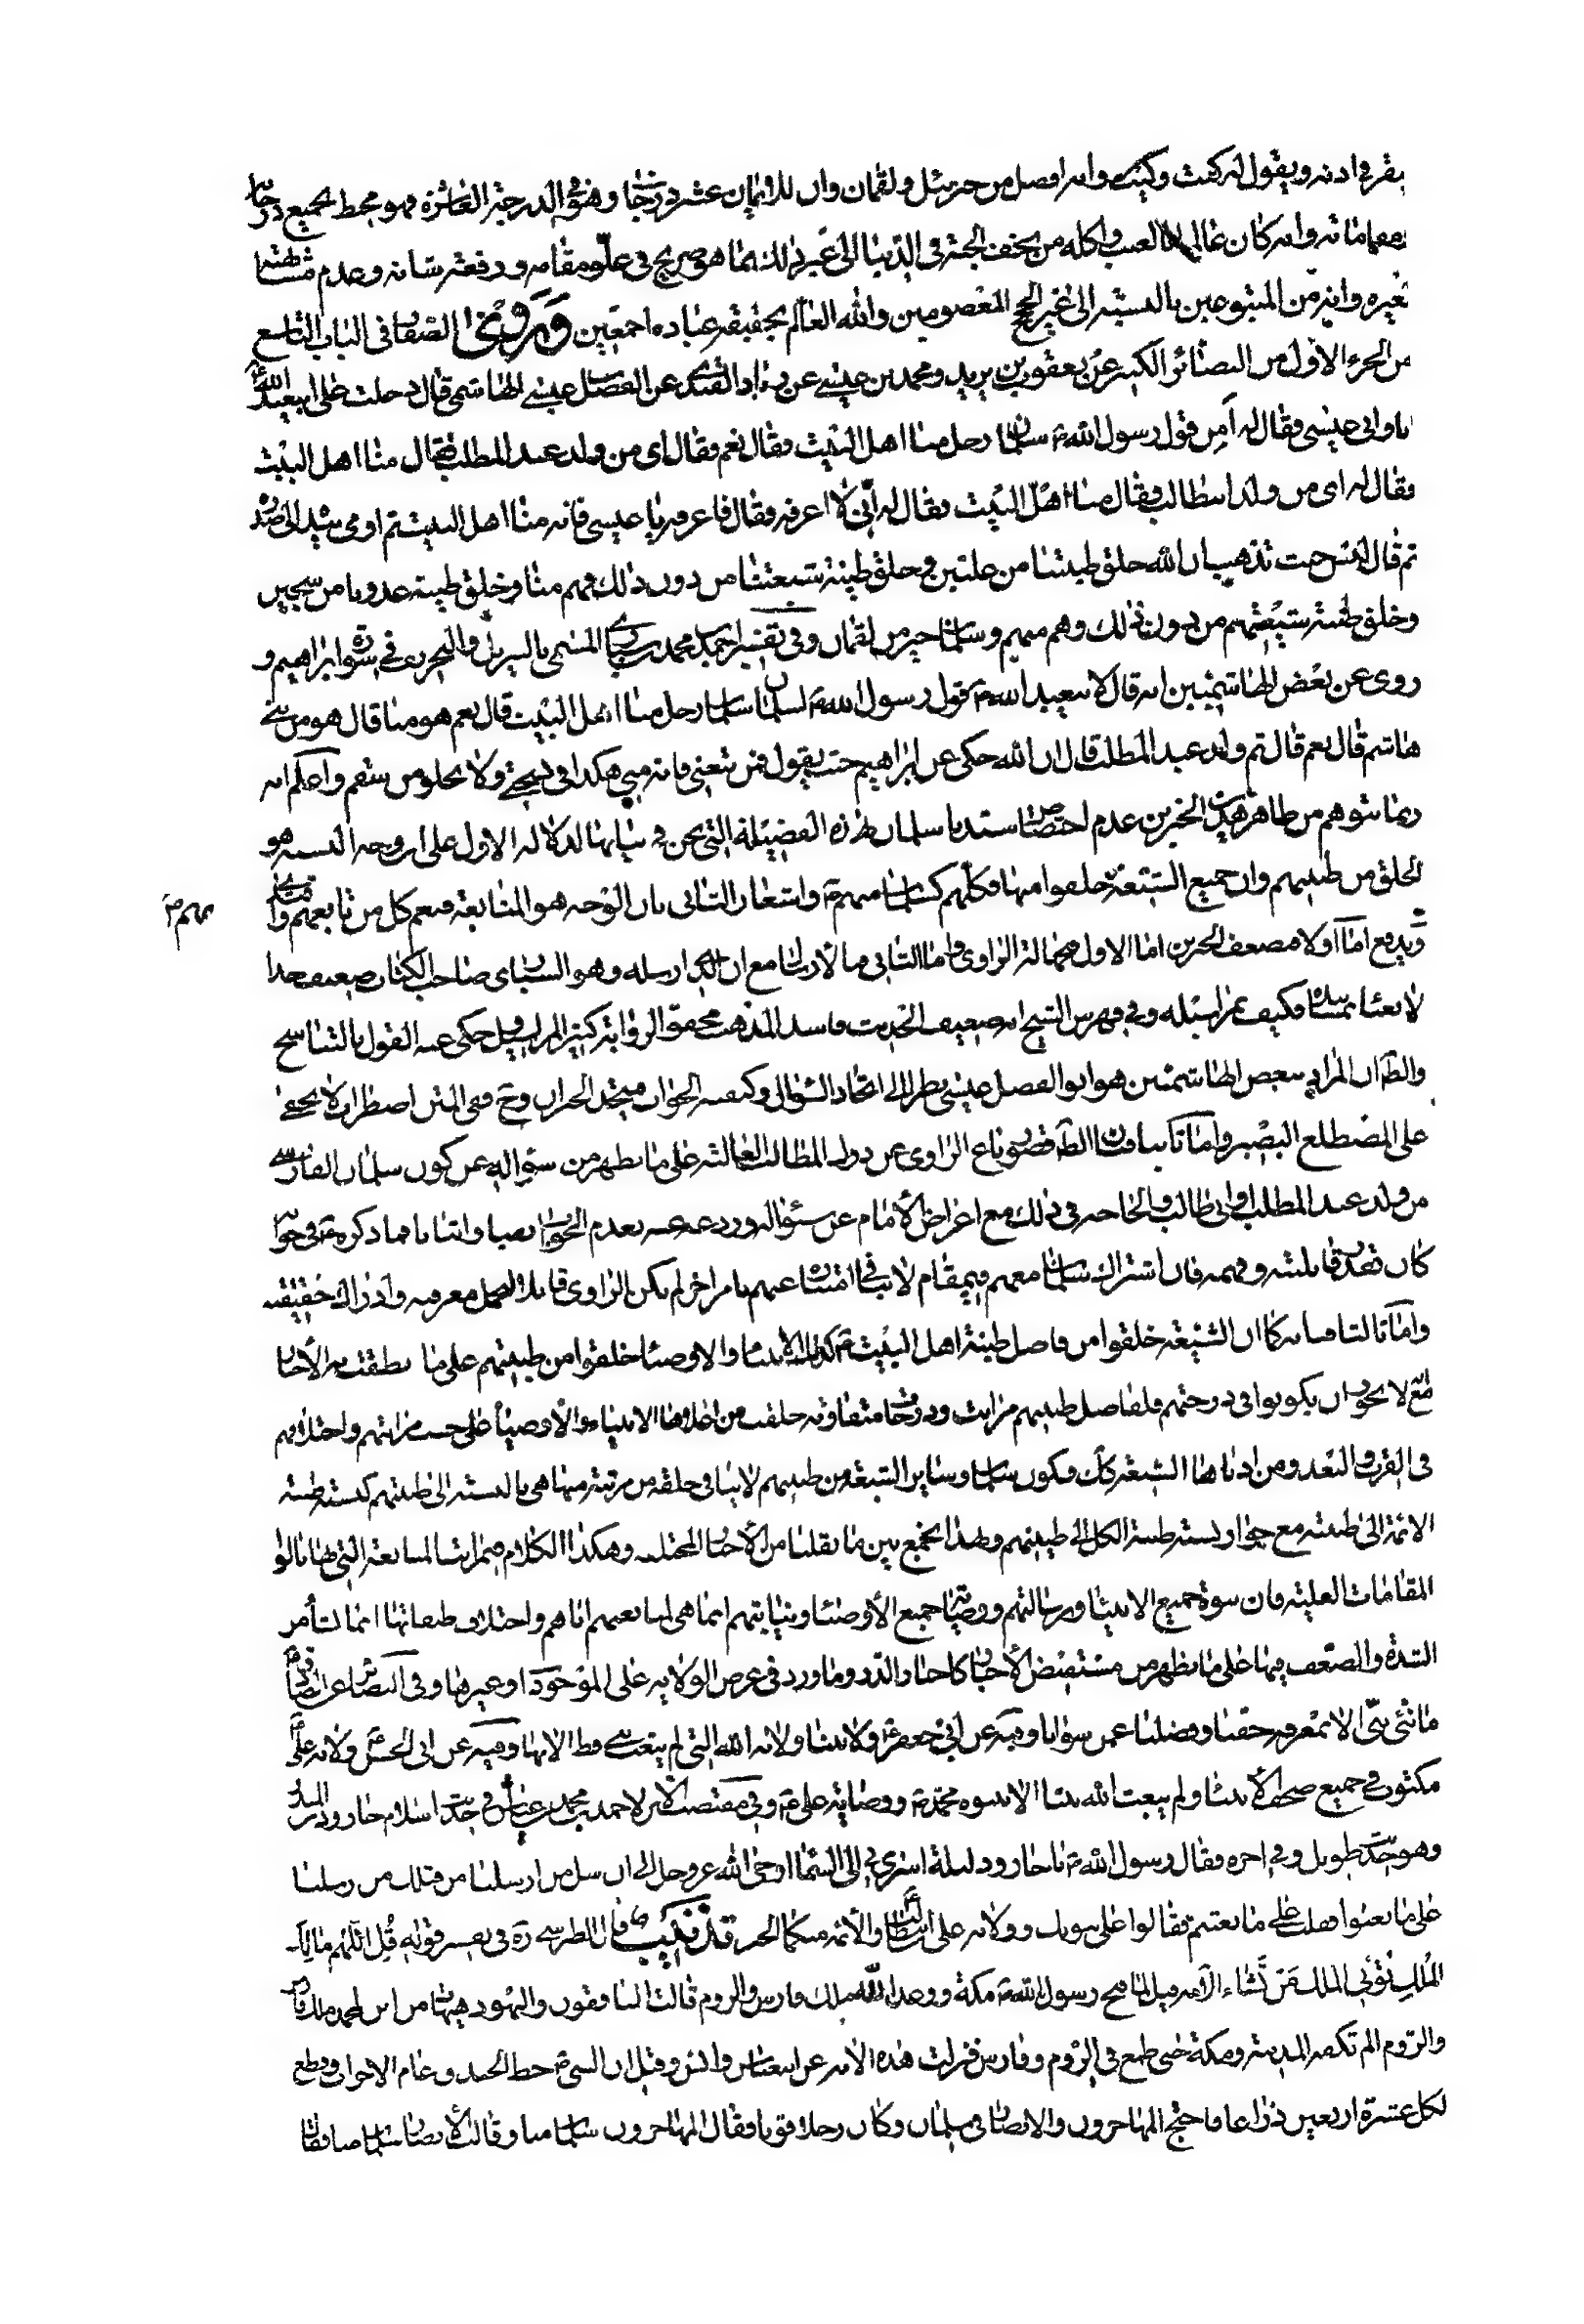 ينقر في اذنه ويقول له كيت وكيت وانه افضل من جبرئيل ولقمان وان للايمان عشر درجات وهو في الدرجة العاشرة فهو محيط بجميع درجاته
ومقاماته وانه كان عالما بالغيب واكله من تحف الجنة في الدنيا الى غير ذلك مما هو صريح في علو مقامه ورفعة شانه وعدم مشابهته
لغيره وانه من المتبوعين بالنسبة الى غير الحجج المعصومين والله العالم بحقيقة عباده اجمعين وروى الصفار في الباب التاسع
من الجزء الاول من البصائر الكبير عن يعقوب بن يزيد ومحمد بن عيسى عن زياد القندي عن الفضل عيسى الهاشمي قال دخلت على ابيعبد الله
انا وابي عيسى فقال له امن قول رسول الله سلمان رجل منا اهل البيت فقال نعم فقال اى من ولد عبد المطلب فقال منا اهل البيت
فقال له اى من ولد ابيطالب فقال منا اهل البيت فقال له انى لا اعرفه فقال فاعرفه يا عيسى فانه منا اهل البيت ثم اومى بيده الى صدره
ثم قال ليس حيث تذهب ان الله خلق طينتنا من عليين وخلق طينة شيعتنا من دون ذلك فهم منا وخلق طينة عدونا من سجين
وخلق طينة شيعتهم من دون ذلك وهم منهم وسلمان خير من لقمان وفي تفسير احمد بن محمد السياري المسمى بالتنزيل والتحريف في سورة ابراهيم و
روى عن بعض الهاشميين انه قال لابيعبد الله قول رسول الله لسلمان سلمان رجل منا اهل البيت قال نعم هو منا قال هو من بنى
هاشم قال نعم قال ثم ولد عبد المطلب قال ان الله حكى عن ابراهيم حيث يقول فمن تبعني فانه مني هكذا في نسختي ولا يخلو من سقم واعلم انه
ربما يتوهم من ظاهر هذين الخبرين عدم اختصاص سيدنا سلمان بهذه الفضيلة التي نحن في بيانها لدلالة الاول على ان وجه النسبة هو
الخلق من طينتهم وان جميع الشيعة خلقوا منها فكلهم كسلمان منهم واشعار الثاني بان الوجه هو المتابعة فيعم كل من تابعهم
ويدفع اما اولا فبضعف الخبرين اما الاول فبجهالة الراوى واما الثاني فبالارسال مع ان الذى ارسله وهو السياري صاحب الكتاب ضعيف جدا
لا يعتنى بمسنده فكيف بمراسيله وفي فهرس الشيخ انه ضعيف الحديث فاسد المذهب مجفو الرواية كثير المراسيل وحكى عنه القول بالتناسخ
والظ ان المراد ببعض الهاشميين هو ابو الفضل عيسى نظرا الى اتحاد السؤال وكيفية الجواب فيتحد الخبران وح ففي المتن اضطراب لا يخفى
على المضطلع البصير واما ثانيا فبان الظ قصور باع الراوى عن درك المطالب العالية على ما يظهر من سؤاله عن كون سلمان الفارسي
من ولد عبد المطلب وابى طالب والحاحه في ذلك مع اعراض الامام عن سؤاله
كان بقدر قابليته وفهمه فان اشتراك سلمان معهم في مقام لا ينافي امتيازه عنهم بامر اخر لم يكن الراوى قابلا لتحمل معرفته وادراك حقيقته
واما ثالثا فبانه كما ان الشيعة خلقوا من فاضل طينة اهل البيت كذلك الانبياء والاوصياء خلقوا من طينتهم على ما نطقت به الاخبار
مع انه لا يجوز ان يكونوا في درجتهم فلفاضل طينتهم مراتب ودرجات متفاوتة خلقت من اعلاها الانبياء والاوصياء على حسب مراتبهم واختلافهم
في القرب والبعد ومن ادناها الشيعة كك فكون سلمان وساير الشيعة من طينتهم لا ينافي خلقه من مرتبة منها هي بالنسبة الى طينتهم كنسبة طينة
الائمة الى طينته مع جواز نسبة طينة الكل الى طينتهم وبهذا يجمع بين ما نقلنا من الاخبار المختلفة وهكذا الكلام في مراتب المتابعة التي بها نالوا
المقامات العلية فان نبوة جميع الانبياء ورسالتهم ووصاية جميع الاوصياء ونيابتهم انما هي لمتابعتهم اياهم واختلاف طبقاتها انما نشأ من
الشدة والضعف فيها على ما يظهر من مستفيض الاخبار كاخبار الذر وما ورد في عرض الولاية على الموجودات وغيرها وفي البصائر عن الصادق
ما نبئ نبي الا بمعرفة حقنا وبفضلنا عمن سوانا وفيه عن ابي جعفر ولايتنا ولاية الله التي لم يبعث نبي قط الا بها وفيه عن ابي الحسن ولاية علي
مكتوب في جميع صحف الانبياء ولم يبعث الله نبيا الا بنبوة محمد ووصاية علي وفي مقتضب الاثر لاحمد بن محمد بن عياش في حديث اسلام جارود بن المنذر
وهو حديث طويل وفي اخره فقال رسول الله يا جارود ليلة اسرى بي الى السماء اوحى الله عز وجل الى ان سل من ارسلنا من قبلك من رسلنا
على ما بعثوا فقلت على ما بعثتم فقالوا على نبوتك وولاية على ابن ابيطالب والائمة منكما الخبر تذنيب قال الطبرسي ره في تفسير قوله قل اللهم مالك
الملك تؤتي الملك من تشاء الاية قيل لما فتح رسول الله مكة ووعد امته ملك فارس والروم قالت المنافقون واليهود هيهات من اين لمحمد ملك فارس
والروم الم تكفه المدينة ومكة حتى طمع في الروم وفارس فنزلت هذه الاية عن ابن عباس وانس وقيل ان النبي خط الخندق عام الاحزاب وقطع
لكل عشرة اربعين ذراعا فاحتج المهاجرون والانصار في سلمان وكان رجلا قويا فقال المهاجرون سلمان منا وقالت الانصار سلمان منا فقال